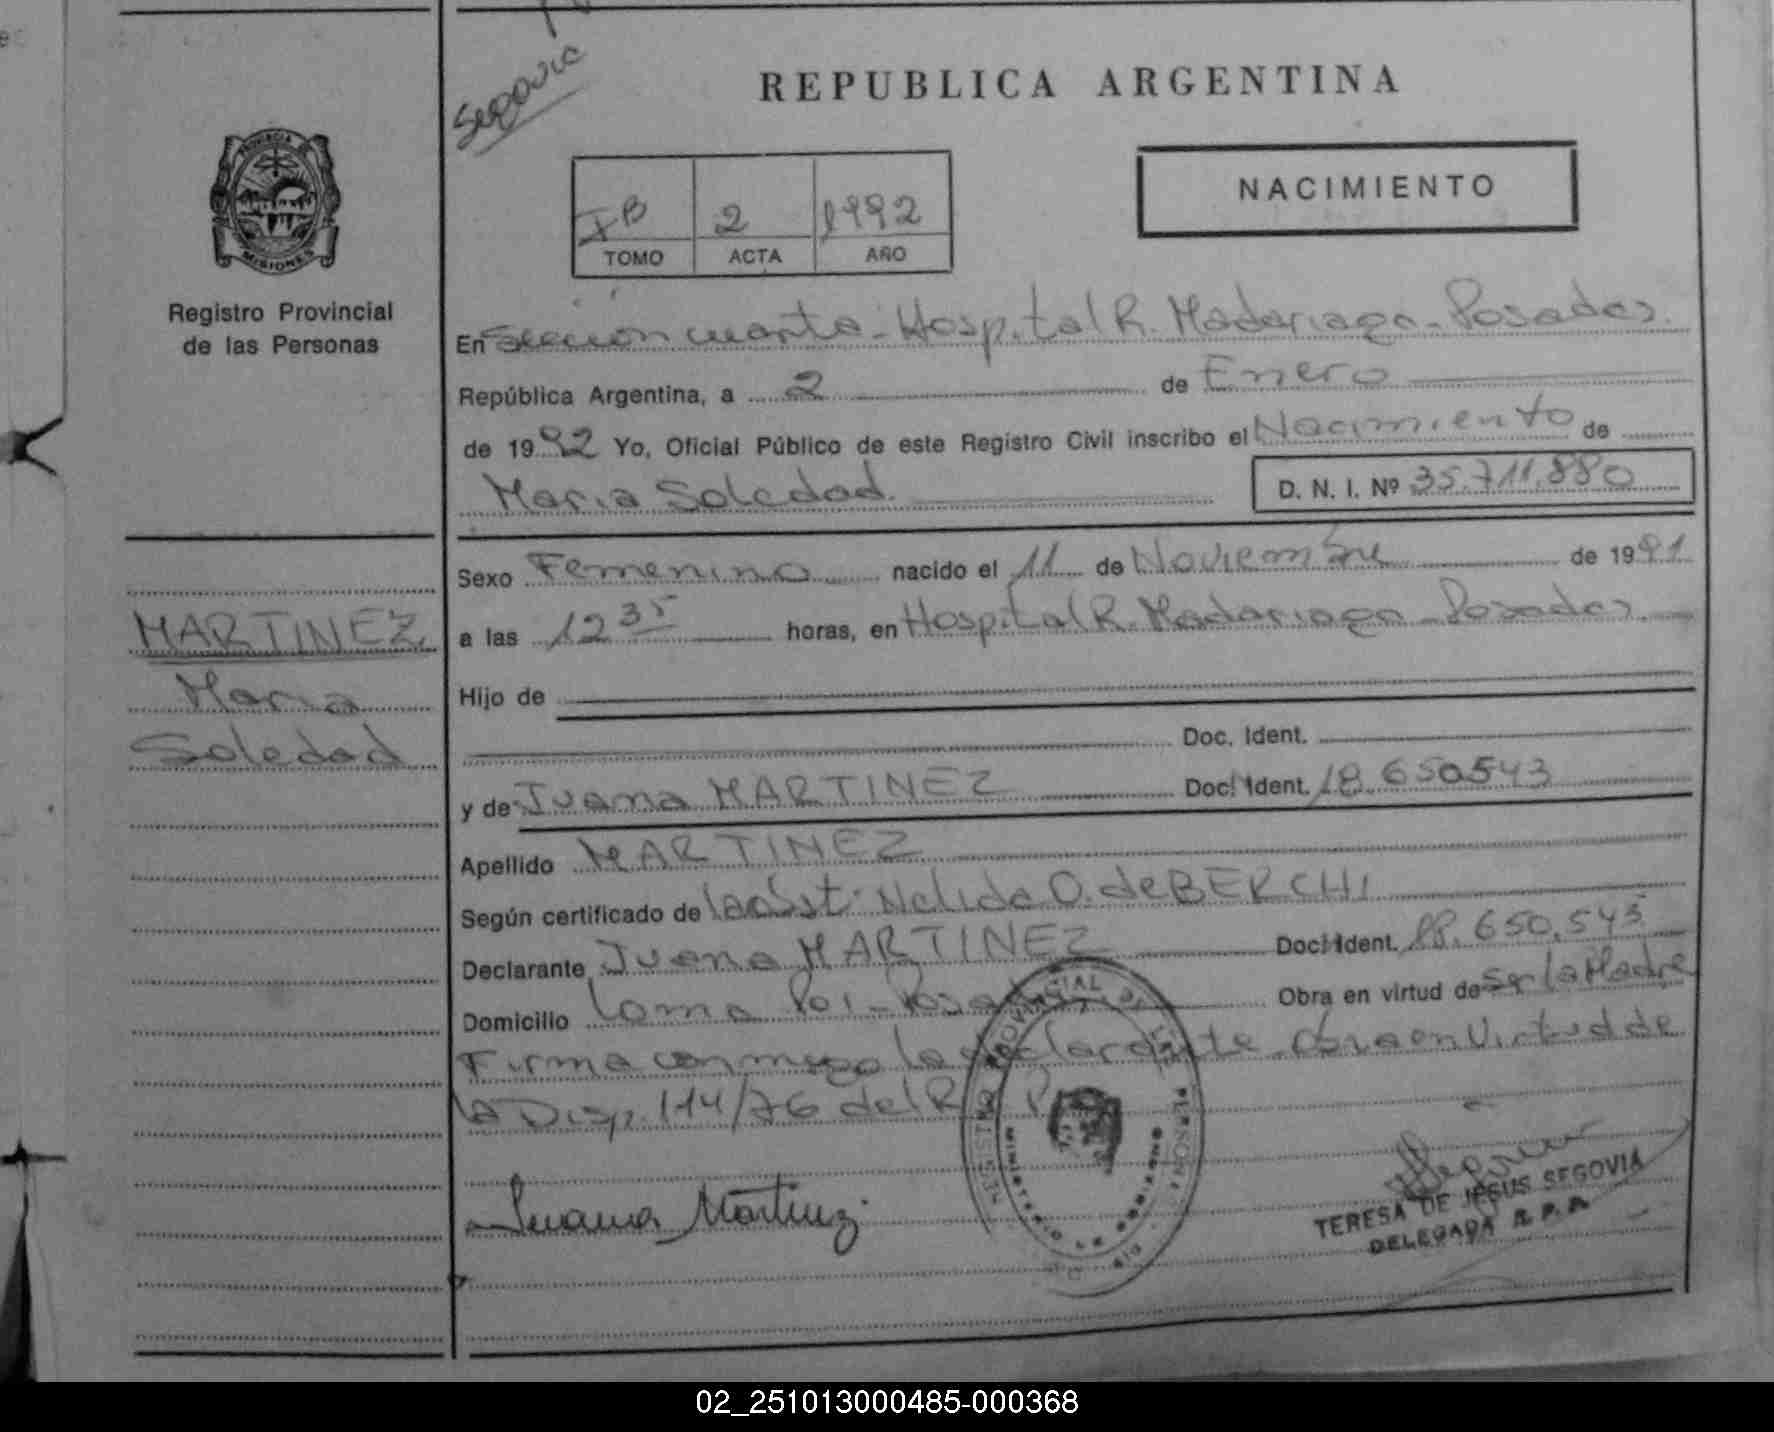 Segovia
REPUBLICA ARGENTINA
NACIMIENTO
PROVINCIA DE
MISIONES
Registro Provincial
de las Personas
IB 2 1992
TOMO ACTA AÑO
En Sección cuarta - Hospital R. Madariaga - Posadas.
República Argentina, a 2 de Enero
de 1992 Yo, Oficial Público de este Registro Civil inscribo el Nacimiento de
Maria Soledad. D. N. I. Nº 35.711.880
Sexo Femenino nacido el 11 de Noviembre de 1991
a las 12 35 horas, en Hospital R. Madariaga - Posadas.
Hijo de
Doc. Ident.
y de Juana MARTINEZ Doc. Ident. 18.650543
Apellido MARTINEZ
Según certificado de la obst. Nelida O. de BERCHI
Declarante Juana MARTINEZ Doc. Ident. 18.650.543
Domicilio Loma Poi - Posadas Obra en virtud de ser la Madre
Firma conmigo la declarante. Obra en Virtud de
la Disp. 114/76 del R. P.
Juana Martinez
TERESA DE JESUS SEGOVIA
DELEGADA R. P. P.
MARTINEZ
Maria
Soledad
REGISTRO PROVINCIAL DE LAS PERSONAS
MINISTERIO DE GOBIERNO
02_251013000485-000368